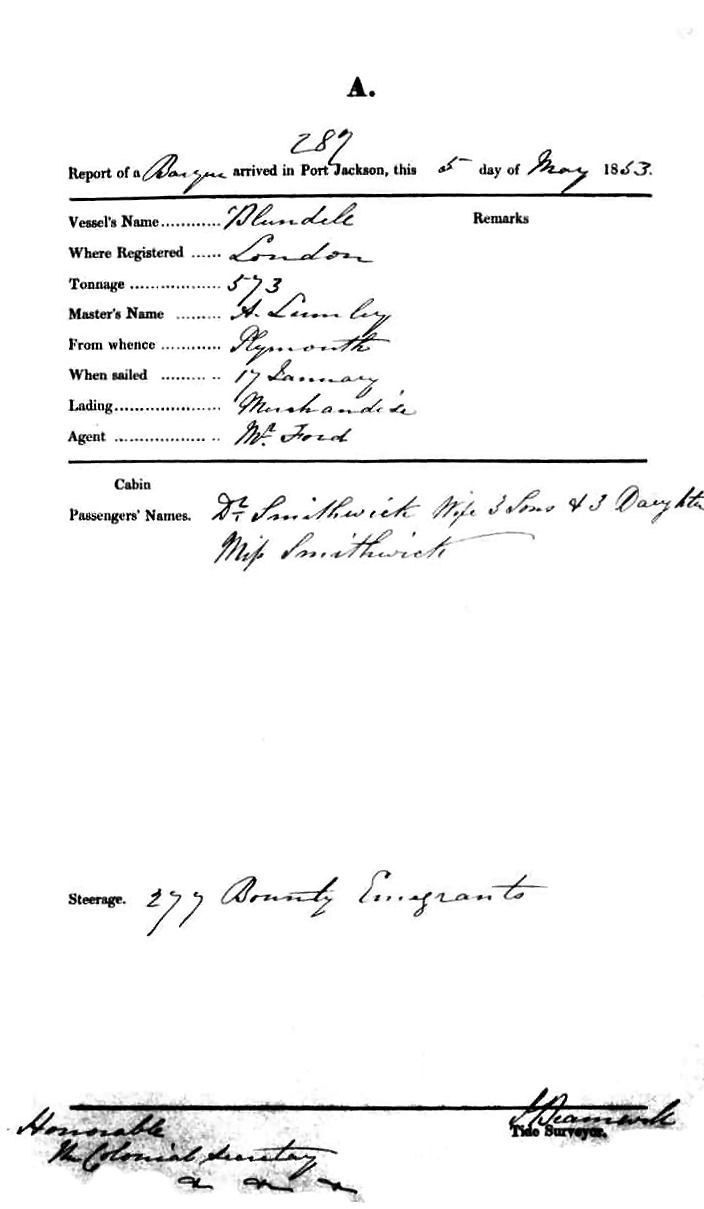 A.
287
Report of a Barque arrived in Port Jackson, this 5 day of May 1853.
Vessel's Name............ Blundell Remarks
Where Registered ...... London
Tonnage .................. 573
Master's Name ......... A. Lumley
From whence ............ Plymouth
When sailed ......... .. 17 January
Lading..................... Merchandise
Agent .................. .. Mr. Ford
Cabin
Passengers' Names. Dr. Smithwick Wife 3 Sons & 3 Daughter
Miss Smithwick
Steerage. 277 Bounty Emegrants
Tide Surveyor.
Honorable
The Colonial Secretary